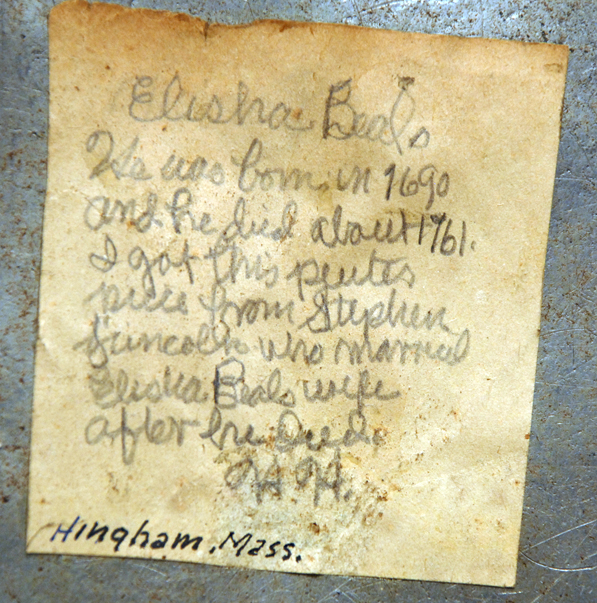 Elisha Beals
He was born in 1690
and he died about 1761.
I got this peuter
piece from Stephen
Lincoln who married
Elisha Beals wife
after he died.
H.H.
Hingham, Mass.